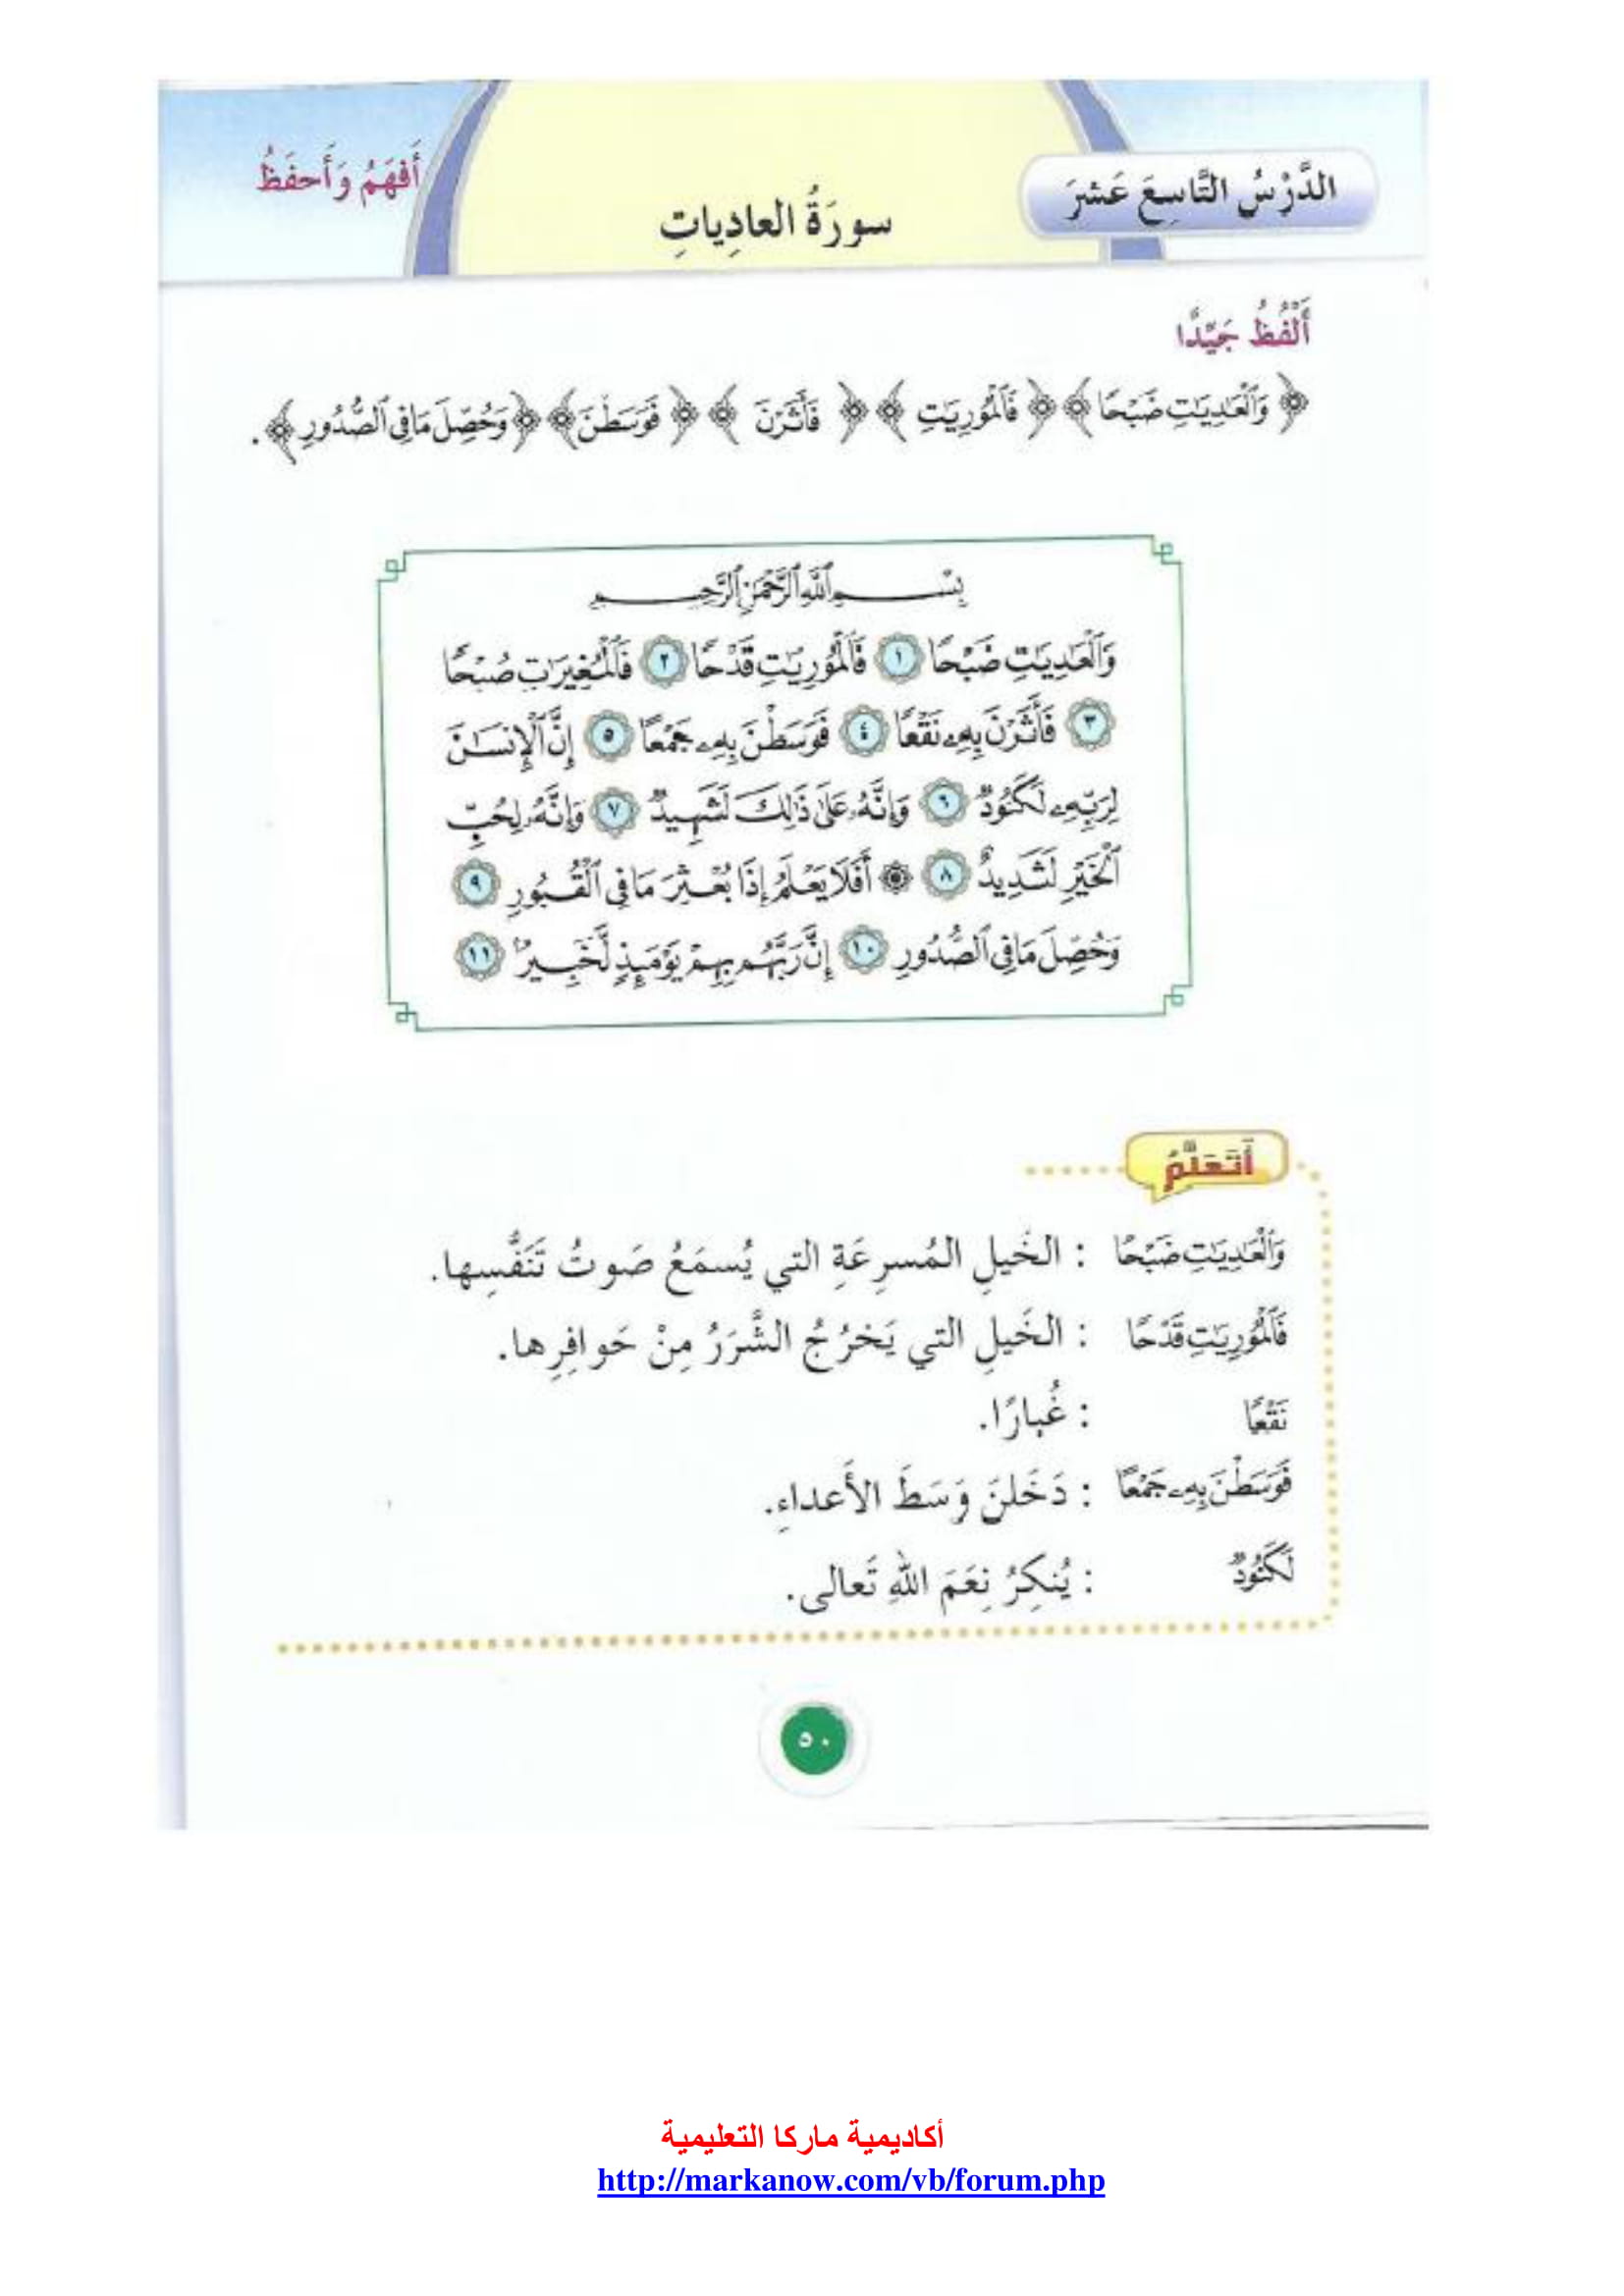 الدَّرْسُ التَّاسِعَ عَشَرَ
سورَةُ العادِياتِ
أَفهَمُ وَأَحفَظُ
أَلْفُظُ جَيِّدًا
﴿ وَٱلْعَٰدِيَٰتِ ضَبْحًا ﴾ ﴿ فَٱلْمُورِيَٰتِ ﴾ ﴿ فَأَثَرْنَ ﴾ ﴿ فَوَسَطْنَ ﴾ ﴿ وَحُصِّلَ مَا فِى ٱلصُّدُورِ ﴾ .
بِسْمِ ٱللَّهِ ٱلرَّحْمَٰنِ ٱلرَّحِيمِ
وَٱلْعَٰدِيَٰتِ ضَبْحًا ١ فَٱلْمُورِيَٰتِ قَدْحًا ٢ فَٱلْمُغِيرَٰتِ صُبْحًا
٣ فَأَثَرْنَ بِهِۦ نَقْعًا ٤ فَوَسَطْنَ بِهِۦ جَمْعًا ٥ إِنَّ ٱلْإِنسَٰنَ
لِرَبِّهِۦ لَكَنُودٌ ٦ وَإِنَّهُۥ عَلَىٰ ذَٰلِكَ لَشَهِيدٌ ٧ وَإِنَّهُۥ لِحُبِّ
ٱلْخَيْرِ لَشَدِيدٌ ٨ ۞ أَفَلَا يَعْلَمُ إِذَا بُعْثِرَ مَا فِى ٱلْقُبُورِ ٩
وَحُصِّلَ مَا فِى ٱلصُّدُورِ ١٠ إِنَّ رَبَّهُم بِهِمْ يَوْمَئِذٍ لَّخَبِيرٌۢ ١١
أَتَعَلَّمُ
وَٱلْعَٰدِيَٰتِ ضَبْحًا : الخَيلِ المُسرِعَةِ التي يُسمَعُ صَوتُ تَنَفُّسِها.
فَٱلْمُورِيَٰتِ قَدْحًا : الخَيلِ التي يَخرُجُ الشَّرَرُ مِنْ حَوافِرِها.
نَقْعًا : غُبارًا.
فَوَسَطْنَ بِهِۦ جَمْعًا : دَخَلنَ وَسَطَ الأَعداءِ.
لَكَنُودٌ : يُنكِرُ نِعَمَ اللهِ تَعالى.
٥٠
أكاديمية ماركا التعليمية
http://markanow.com/vb/forum.php